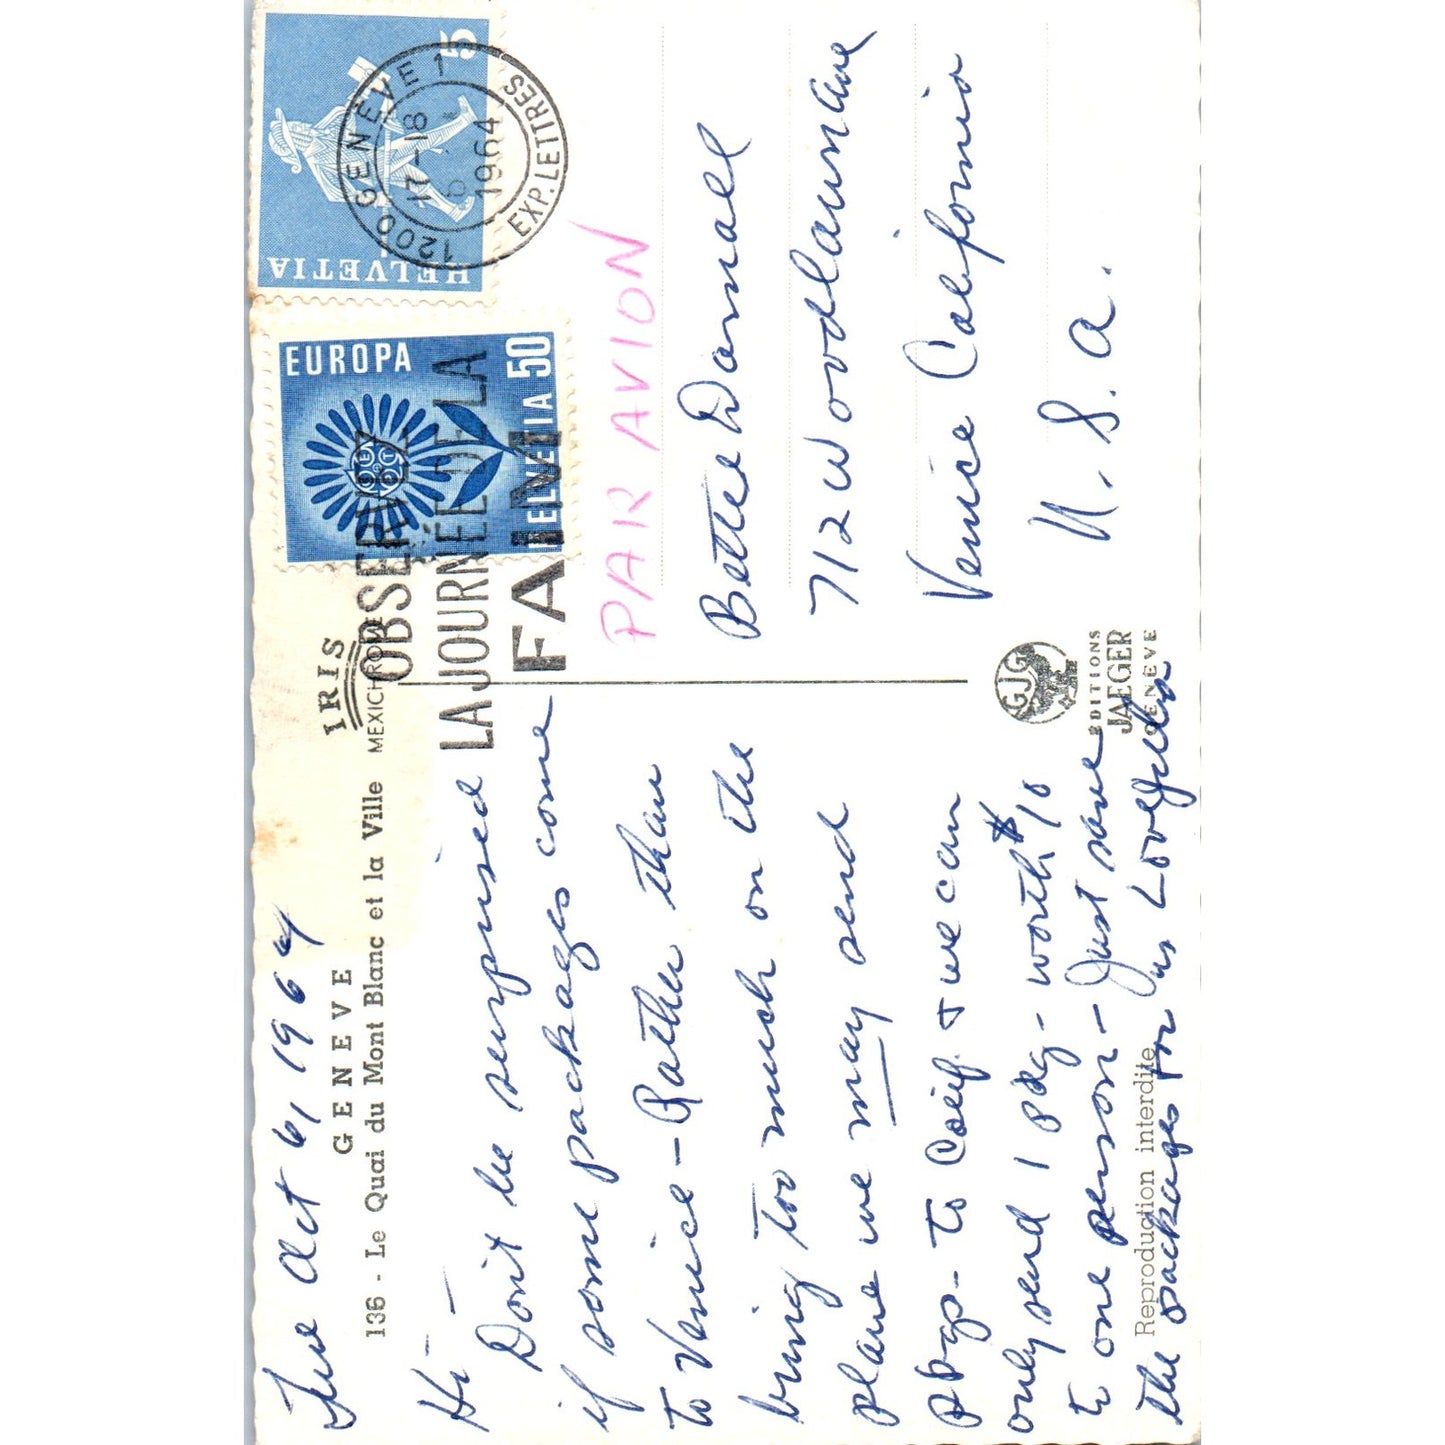 Tue Oct 6, 1964
GENEVE
136 - Le Quai du Mont Blanc et la Ville
IRIS
MEXICHROME
Hi -
Don't be surprised
if some packages come
to Venice - Rather than
bring too much on the
plane we may send
pkgs - to Calif. + we can
only send 1 pkg - worth $10
to one person - Just save
the packages for us Love
Reproduction interdite
GJG
EDITIONS
JAEGER
GENEVE
HELVETIA
5
1200 GENÈVE 1
17-18
1964
EXP. LETTRES
EUROPA
HELVETIA 50
OBSERVEZ
LA JOURNÉE DE LA
FAIM
PAR AVION
Bette Darnall
712 Woodlawn Ave
Venice California
U. S. A.